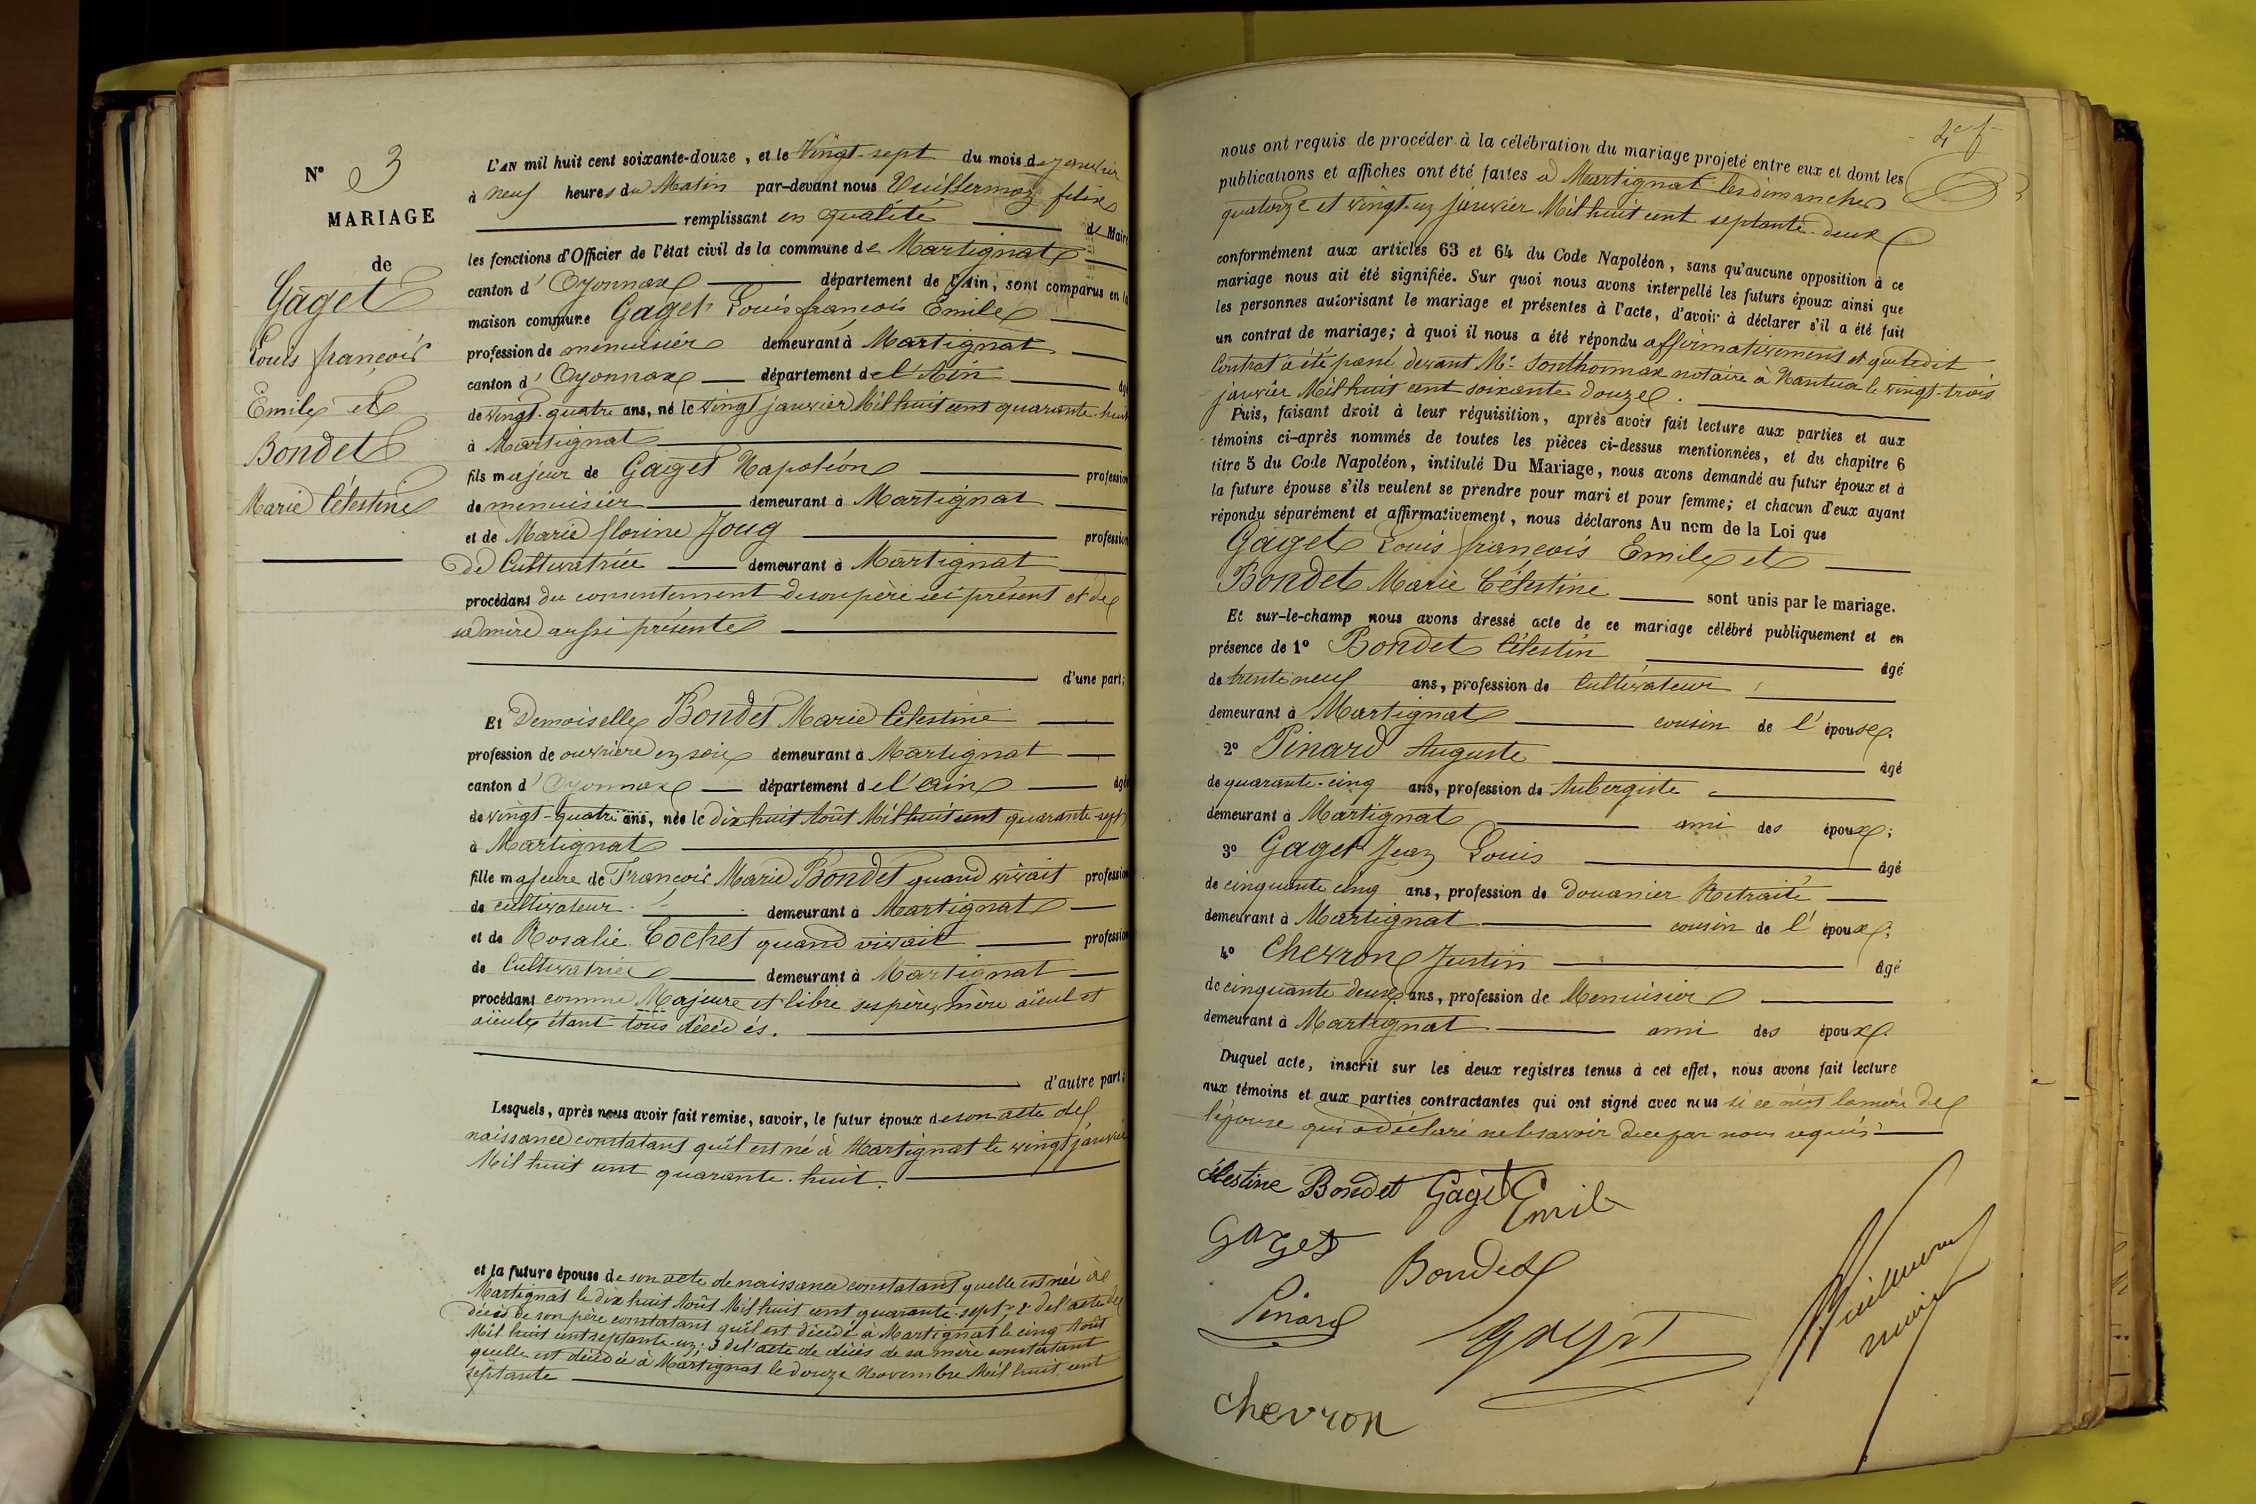 N° 3
MARIAGE
de
Gaget
Louis françois
Emile et
Bondet
Marie Célestine
L'AN mil huit cent soixante-douze, et le Vingt-sept du mois de janvier
à neuf heures du Matin par-devant nous Vuillermoz félix
remplissant en qualité de Maire
les fonctions d'Officier de l'état civil de la commune de Martignat
canton d'Oyonnax département de l'Ain, sont comparus en la
maison commune Gaget Louis françois Emile
profession de menuisier demeurant à Martignat
canton d'Oyonnax département de l'Ain âgé
de vingt-quatre ans, né le vingt janvier Mil huit cent quarante-huit
à Martignat
fils majeur de Gaget Napoléon profession
de menuisier demeurant à Martignat
et de Marie florine Joug profession
de Cultivatrice demeurant à Martignat
procédant du consentement de son père ici présent et de
sa mère aussi présente
d'une part;
Et Demoiselle Bondet Marie Célestine
profession de ouvrière en soie demeurant à Martignat
canton d'Oyonnax département de l'ain âgée
de vingt-quatre ans, née le dix huit Août Mil huit cent quarante-sept
à Martignat
fille majeure de François Marie Bondet quand vivait profession
de cultivateur demeurant à Martignat
et de Rosalie Cochet quand vivait profession
de Cultivatrice demeurant à Martignat
procédant comme Majeure et libre ses père, mère aïeul et
aïeule étant tous décédés.
d'autre part;
Lesquels, après nous avoir fait remise, savoir, le futur époux de son acte de
naissance constatant qu'il est né à Martignat le vingt janvier
Mil huit cent quarante-huit.
et la future épouse de son acte de naissance constatant quelle est née à
Martignat le dix huit Août Mil huit cent quarante-sept, 2° de l'acte de
décès de son père constatant qu'il est décédé à Martignat le cinq Août
Mil huit cent septante-un; 3 de l'acte de décès de sa mère constatant
quelle est décédée à Martignat le douze Novembre Mil huit cent
septante
nous ont requis de procéder à la célébration du mariage projeté entre eux et dont les
publications et affiches ont été faites à Martignat les dimanches
quatorze et vingt-un janvier Mil huit cent septante-deux
conformément aux articles 63 et 64 du Code Napoléon, sans qu'aucune opposition à ce
mariage nous ait été signifiée. Sur quoi nous avons interpellé les futurs époux ainsi que
les personnes autorisant le mariage et présentes à l'acte, d'avoir à déclarer s'il a été fait
un contrat de mariage; à quoi il nous a été répondu affirmativement et que ledit
Contrat a été passé devant Me Southonnax notaire à Nantua le vingt-trois
janvier Mil huit cent soixante douze.
Puis, faisant droit à leur réquisition, après avoir fait lecture aux parties et aux
témoins ci-après nommés de toutes les pièces ci-dessus mentionnées, et du chapitre 6
titre 5 du Code Napoléon, intitulé Du Mariage, nous avons demandé au futur époux et à
la future épouse s'ils veulent se prendre pour mari et pour femme; et chacun d'eux ayant
répondu séparément et affirmativement, nous déclarons Au nom de la Loi que
Gaget Louis françois Emile et
Bondet Marie Célestine sont unis par le mariage.
Et sur-le-champ nous avons dressé acte de ce mariage célébré publiquement et en
présence de 1° Bondet Célestin âgé
de trente neuf ans, profession de Cultivateur
demeurant à Martignat cousin de l'épouse;
2° Pinard Auguste âgé
de quarante-cinq ans, profession de Aubergiste
demeurant à Martignat ami des époux;
3° Gaget Jean Louis âgé
de cinquante cinq ans, profession de Douanier Retraité
demeurant à Martignat cousin de l'époux;
4° Chevron Justin âgé
de cinquante deux ans, profession de Menuisier
demeurant à Martignat ami des époux
Duquel acte, inscrit sur les deux registres tenus à cet effet, nous avons fait lecture
aux témoins et aux parties contractantes qui ont signé avec nous si ce n'est la mère de
l'épouse qui a déclaré ne le savoir de ce par nous requis
Célestine Bondet Gaget Emile
Gaget
Bondet
Pinard
Gaget
Vuillermoz
maire
Chevron